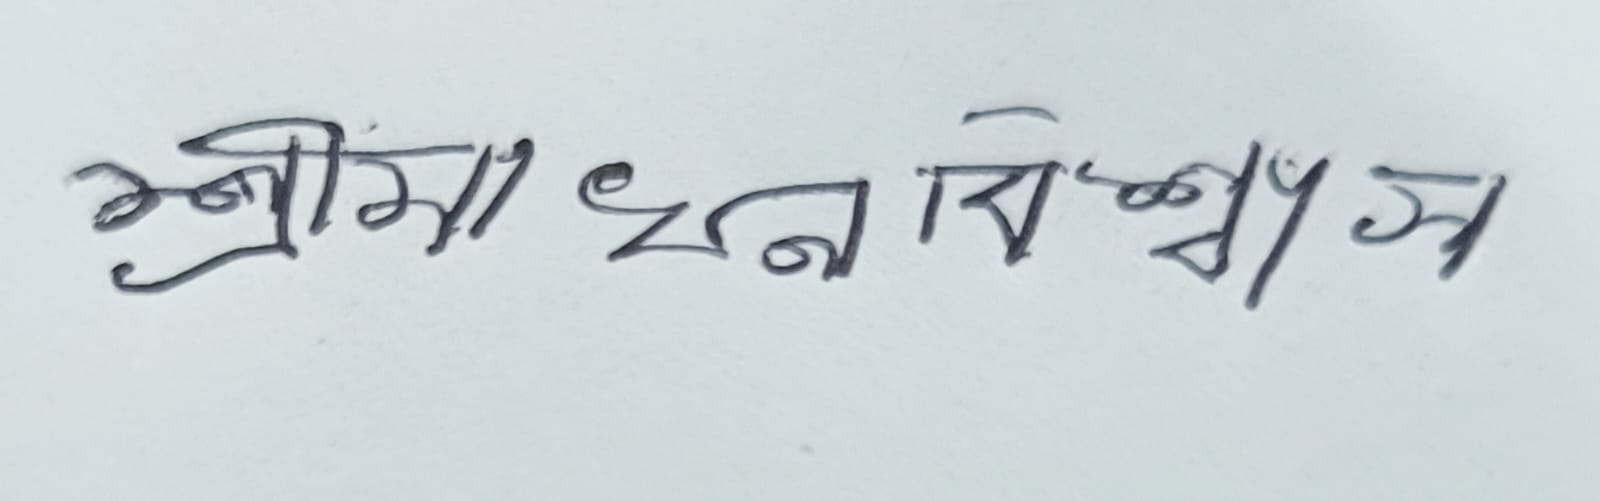 শ্রীমা ধন বিশ্বাস